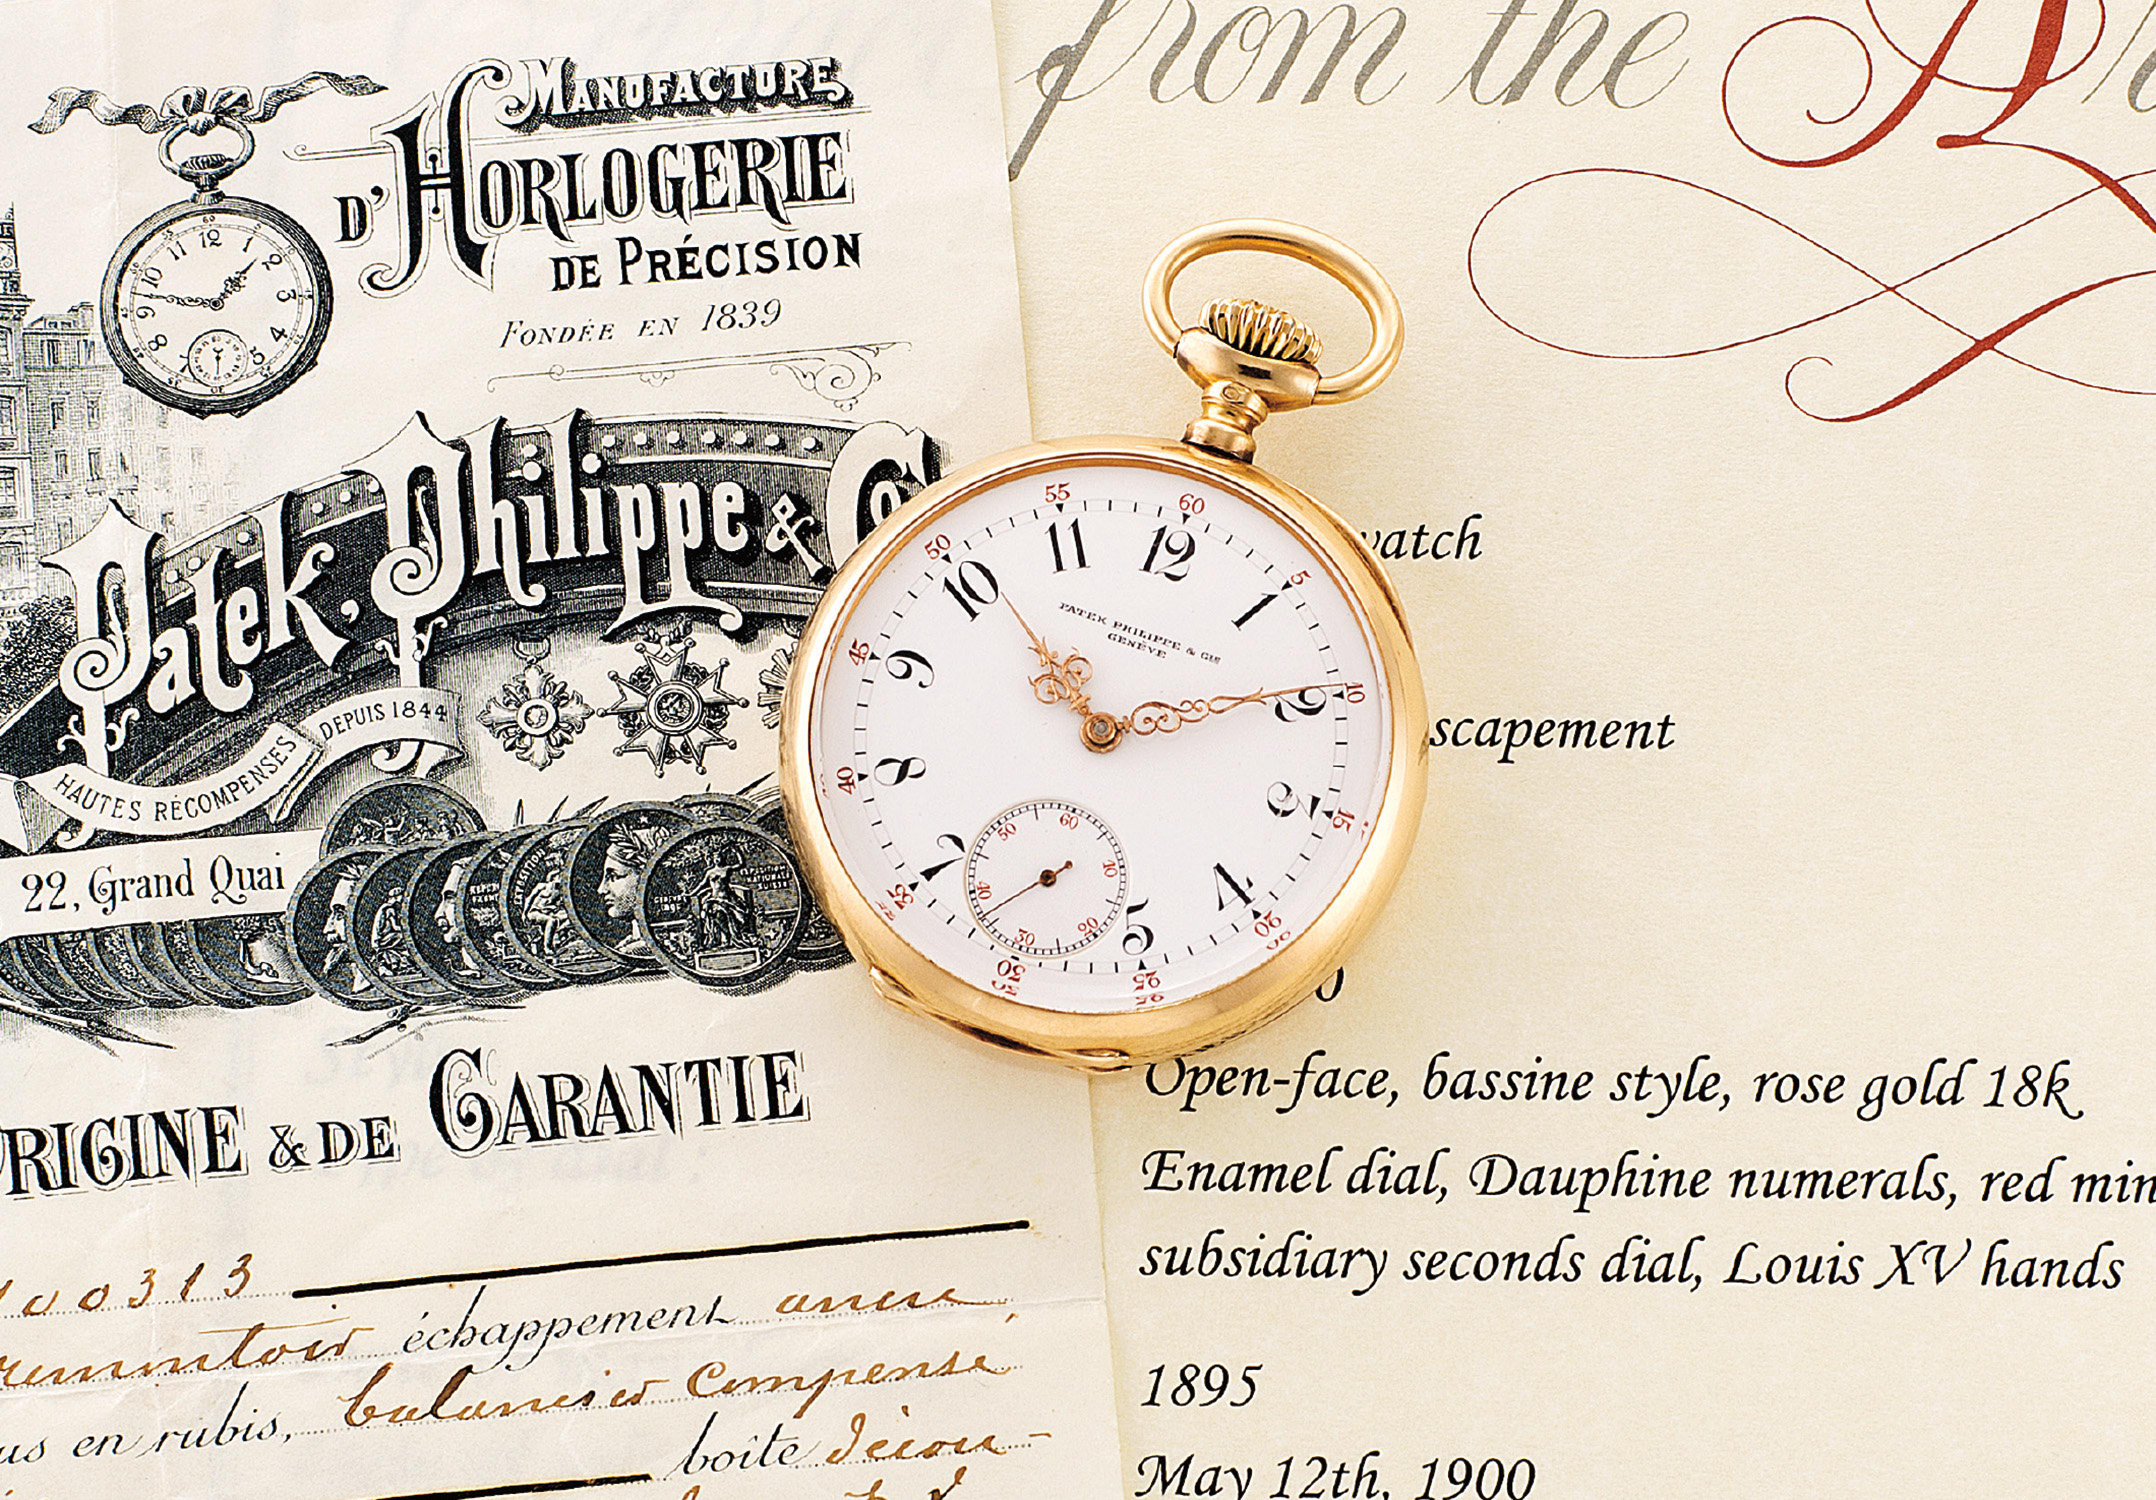 MANUFACTURE
D'HORLOGERIE
DE PRÉCISION
FONDÉE EN 1839
Patek, Philippe & Co
HAUTES RÉCOMPENSES DEPUIS 1844
22, Grand Quai
RIGINE & DE GARANTIE
100313
échappement ancre
us en rubis, balancier compensé
boîte
from the
watch
scapement
0
Open-face, bassine style, rose gold 18k
Enamel dial, Dauphine numerals, red min
subsidiary seconds dial, Louis XV hands
1895
May 12th, 1900
PATEK PHILIPPE & CIE
GENÈVE
60 5 10 15 20 25 30 35 40 45 50 55
12 1 2 3 4 5 7 8 9 10 11
60 10 20 30 40 50
12 1 2 3 4 5 8 9 10 11